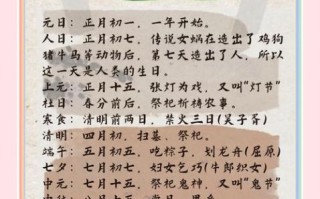 元日:正月初一,一年开始。
人日:正月初七,传说女娲在造出了鸡狗
猪牛马等动物后,第七天造出了人,所以
这一天是人类的生日。
上元:正月十五,张灯为戏,又叫“灯节”
社日:春分前后,祭祀祈祷农事。
寒食:清明前两日,禁火三日(吴子胥)
清明:四月初,扫墓、祭祀。
端午:五月初五,吃粽子,划龙舟(屈原)
七夕:七月初七,妇女乞巧(牛郎织女)
中元:七月十五,祭祀鬼神,又叫“鬼节”